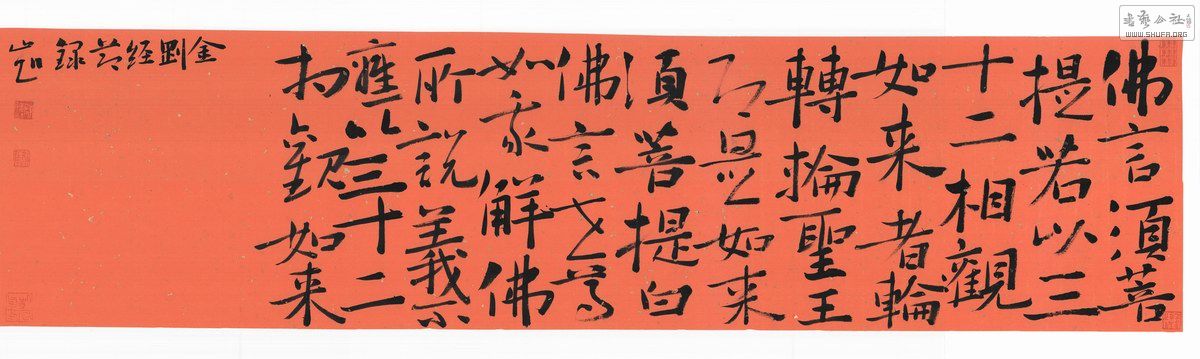 佛言須菩
提若以三
十二相觀
如来者輪
轉輪聖王
则是如来
須菩提白
佛言世尊
如我解佛
所說義不
應以三十二
相觀如来
金剛經节録
書藝公社
WWW.SHUFA.ORG